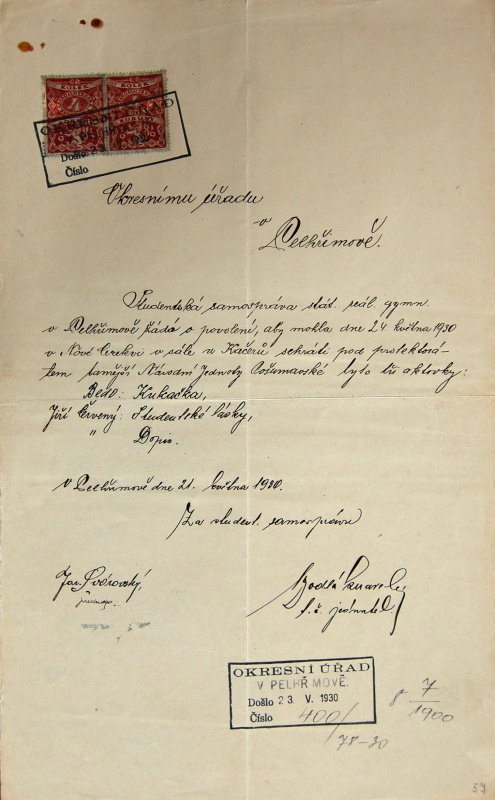 KOLEK KOLEK
OKRESNÍ ÚŘAD
Došlo 23
Číslo
Okresnímu úřadu
v
Pelhřimově.
Studentská samospráva stát. reál. gymn.
v Pelhřimově žádá o povolení, aby mohla dne 24. května 1930
v Nové Cerekvi v sále u Kačerů sehráti pod protektorá-
tem tamější Národní Jednoty Pošumavské tyto tři aktovky:
Bedo: Kukačka,
Jiří Červený: Studentské lásky,
" Dopis.
V Pelhřimově dne 21. května 1930.
Za student. samosprávu
Jar.
t. č. jednatel
OKRESNÍ ÚŘAD
V PELHŘIMOVĚ.
Došlo 23 V. 1930
Číslo 400/
78-30
8 7/1900
57